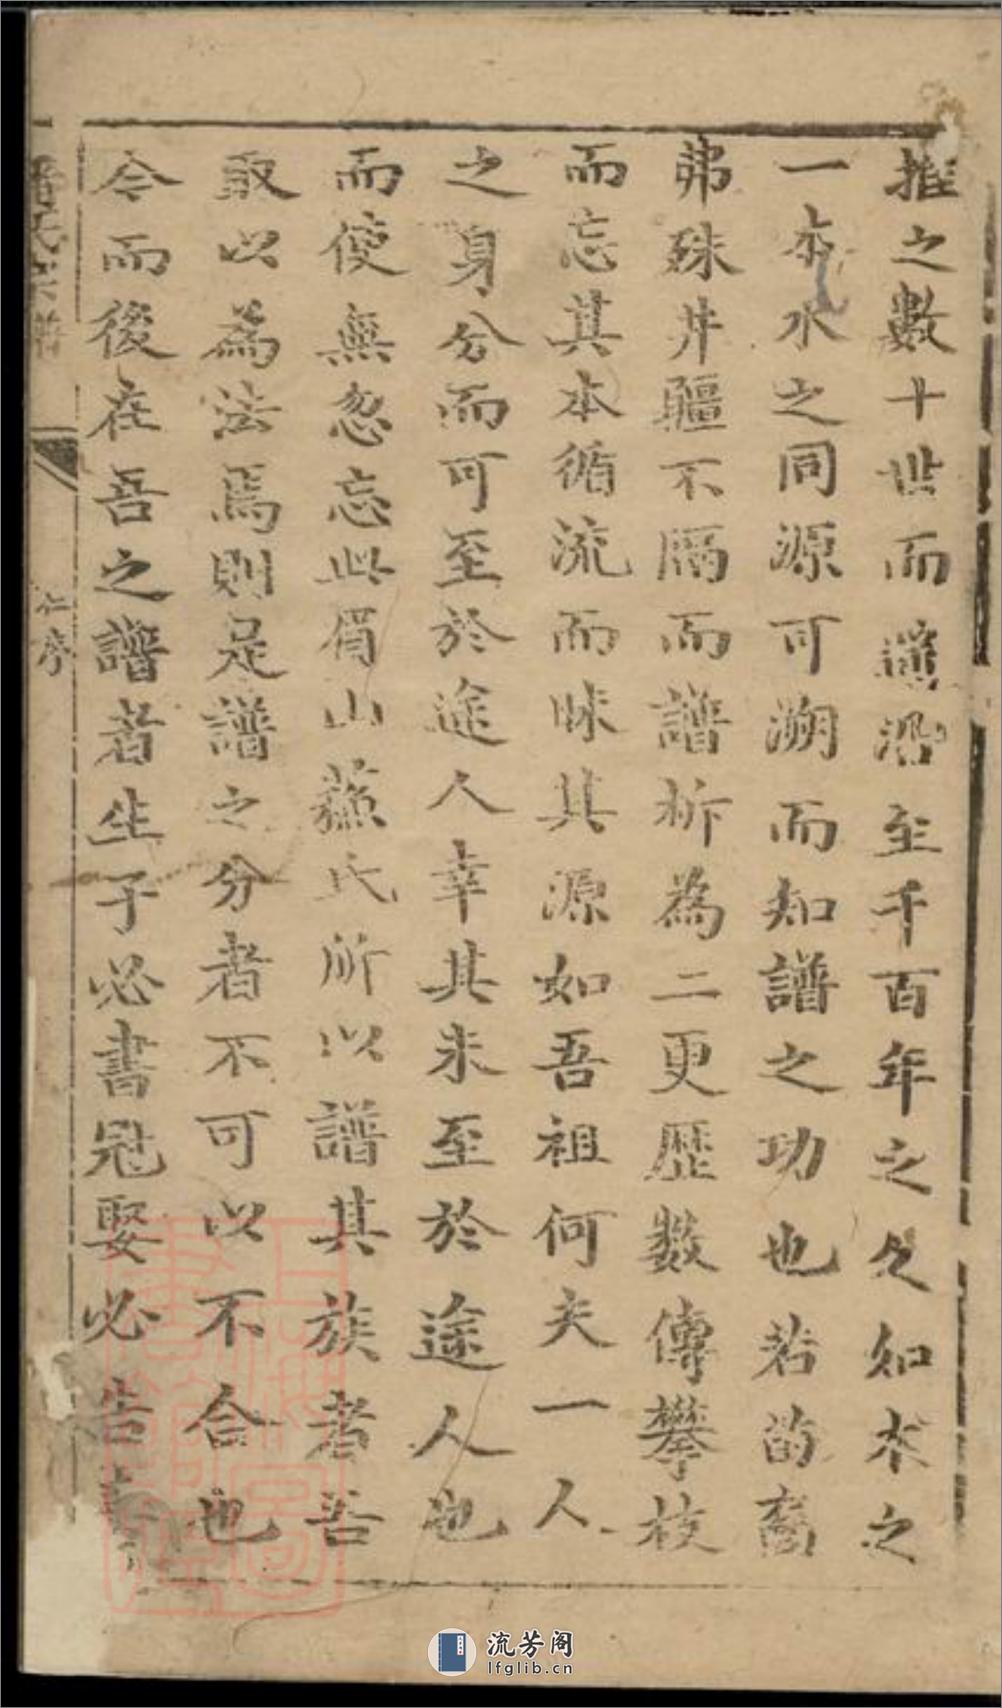 推之數十世而遥沿至千百年之久如木之
一本水之同源可溯而知譜之功也若的裔
弗殊井疆不隔而譜析為二更歷數傳攀枝
而忘其本循流而昧其源如吾祖何夫一人
之身分而可至於途人幸其未至於途人也
而使無忽忘此眉山蘇氏所以譜其族者吾
取以為法焉則是譜之分者不可以不合也
今而後在吾之譜者生子必書冠娶必告
氏宗譜
序
流芳阁
lfglib.cn